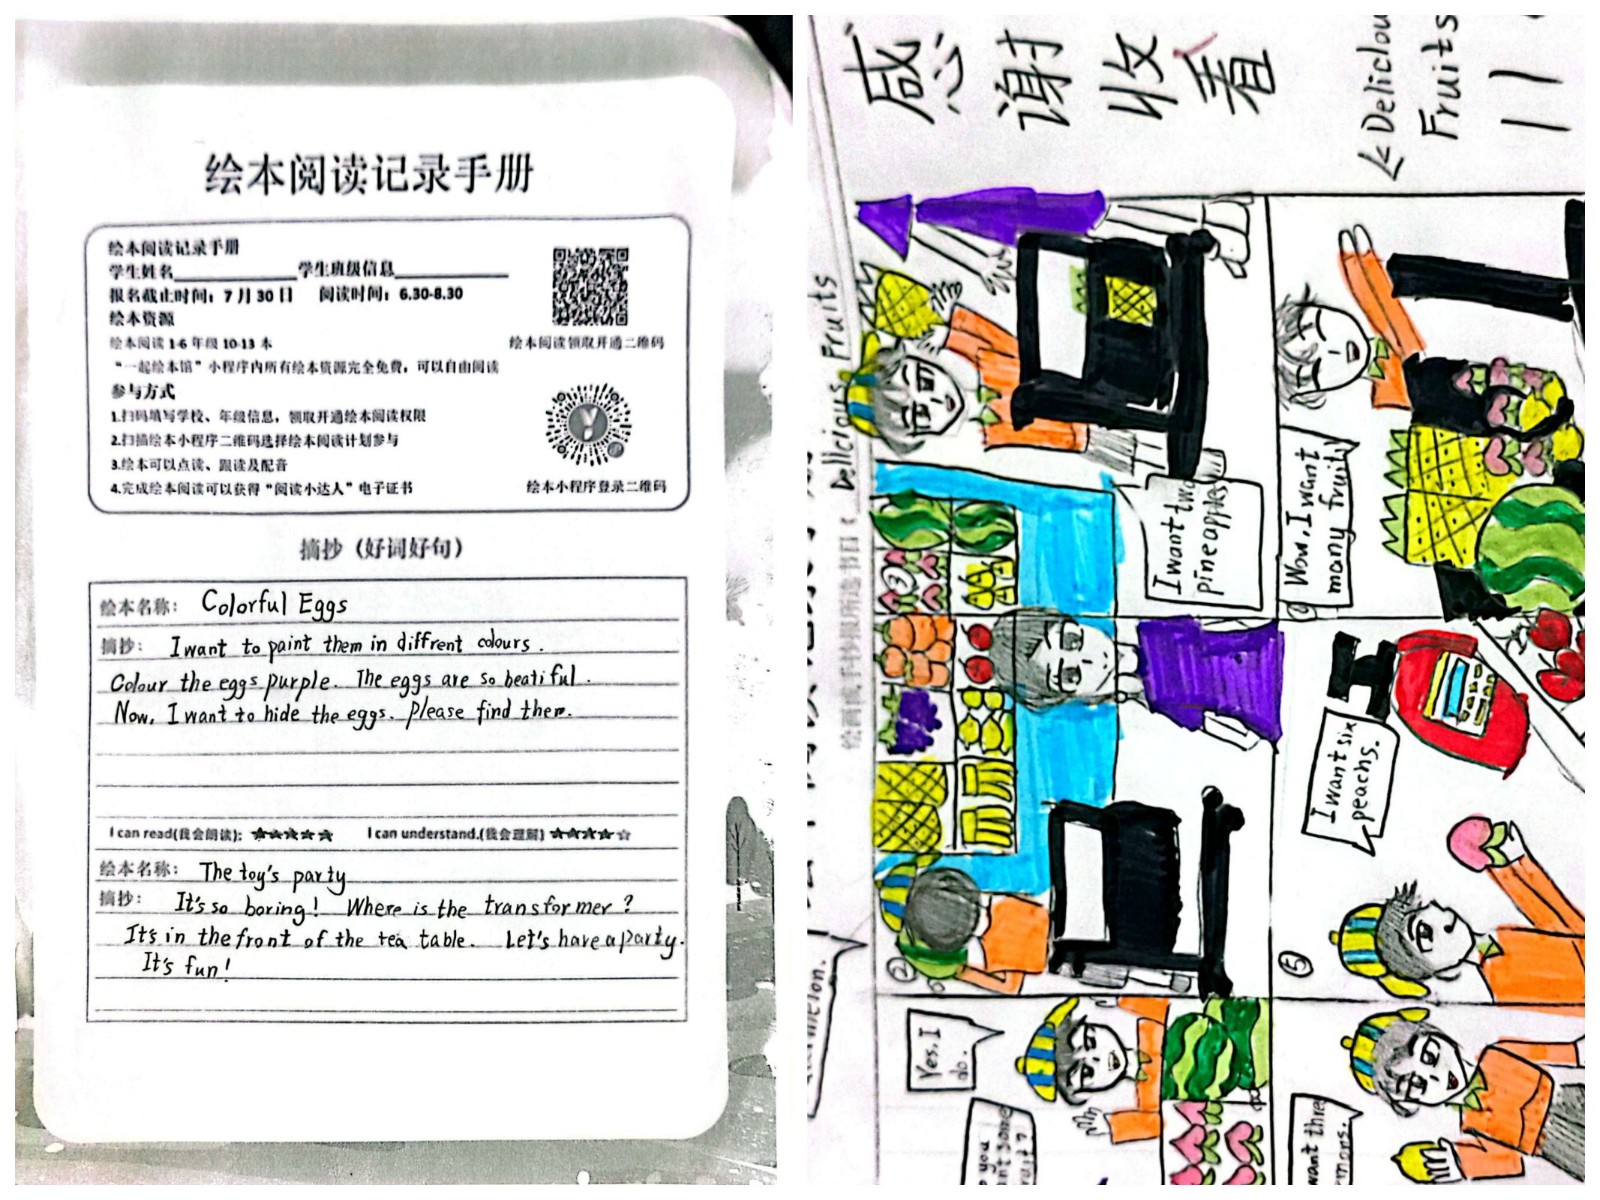 绘本阅读记录手册
绘本阅读记录手册
学生姓名 学生班级信息
报名截止时间：7月30日 阅读时间：6.30-8.30
绘本资源
绘本阅读1-6年级10-13本
绘本阅读领取开通二维码
“一起绘本馆”小程序内所有绘本资源完全免费，可以自由阅读
参与方式
1.扫码填写学校、年级信息，领取开通绘本阅读权限
2.扫描绘本小程序二维码选择绘本阅读计划参与
3.绘本可以点读、跟读及配音
4.完成绘本阅读可以获得“阅读小达人”电子证书
绘本小程序登录二维码
摘抄（好词好句）
绘本名称： Colorful Eggs
摘抄： I want to paint them in diffrent colours.
Colour the eggs purple. The eggs are so beatiful.
Now, I want to hide the eggs. Please find them.
I can read(我会朗读)： ★★★★★ I can understand.(我会理解) ★★★★☆
绘本名称： The toy's party
摘抄： It's so boring! Where is the transformer?
It's in the front of the tea table. Let's have a party.
It's fun!
感谢收看
《Deliciou
Fruits
Delicious Fruits
I want two
pineapples
Wow, I want
many fruit
②
I want six
peachs.
⑤
Yes, I
do.
you
some
want three